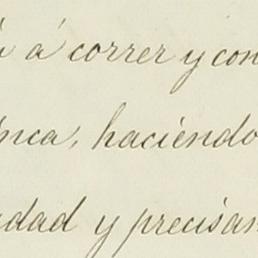 á correr y con
nca, haciendo
dad y precisan